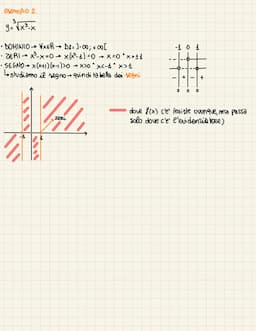 esempio 2
y=∛x³-x
• DOMINIO → ∀x∈R → D:=]-∞;+∞[
• ZERI → x³-x=0 → x(x²-1)=0 → x=0 ˅ x=±1
• SEGNO → x(x+1)(x-1)>0 → x>0 ˅ x<-1 ˅ x>1
↳ studiamo il segno → quindi tabella dei segni
-1 0 1
zeri
-1 1
dove f(x) c'è (esiste ovunque, ma passa
solo dove c'è l'evidenziatore)